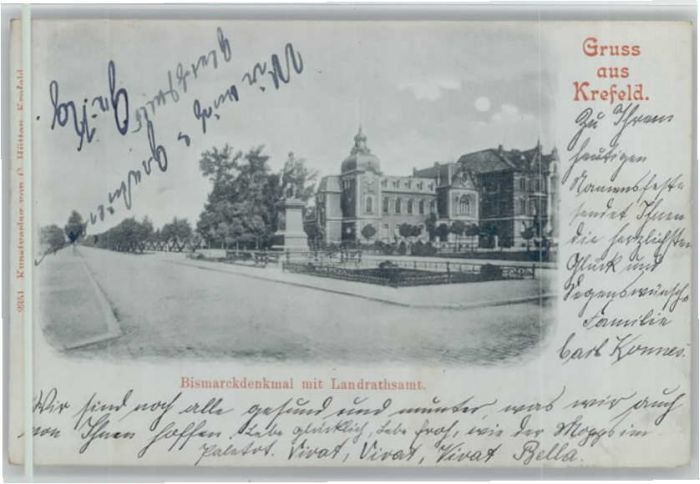 Gruss
aus
Krefeld.
Zu Ihrem
heutigen
Namensfeste
sendet Ihnen
die herzlichsten
Glück und
Segenswünsche
Familie
Carl Konnes.
Wir
auch
Bismarckdenkmal mit Landrathsamt.
Wir sind noch alle gesund und munter, was wir auch
von Ihnen hoffen. Lebe glücklich, Lebe froh, wie der Mopps im
Paletot. Vivat, Vivat, Vivat Bella.
2351 Kunstverlag von Krefeld